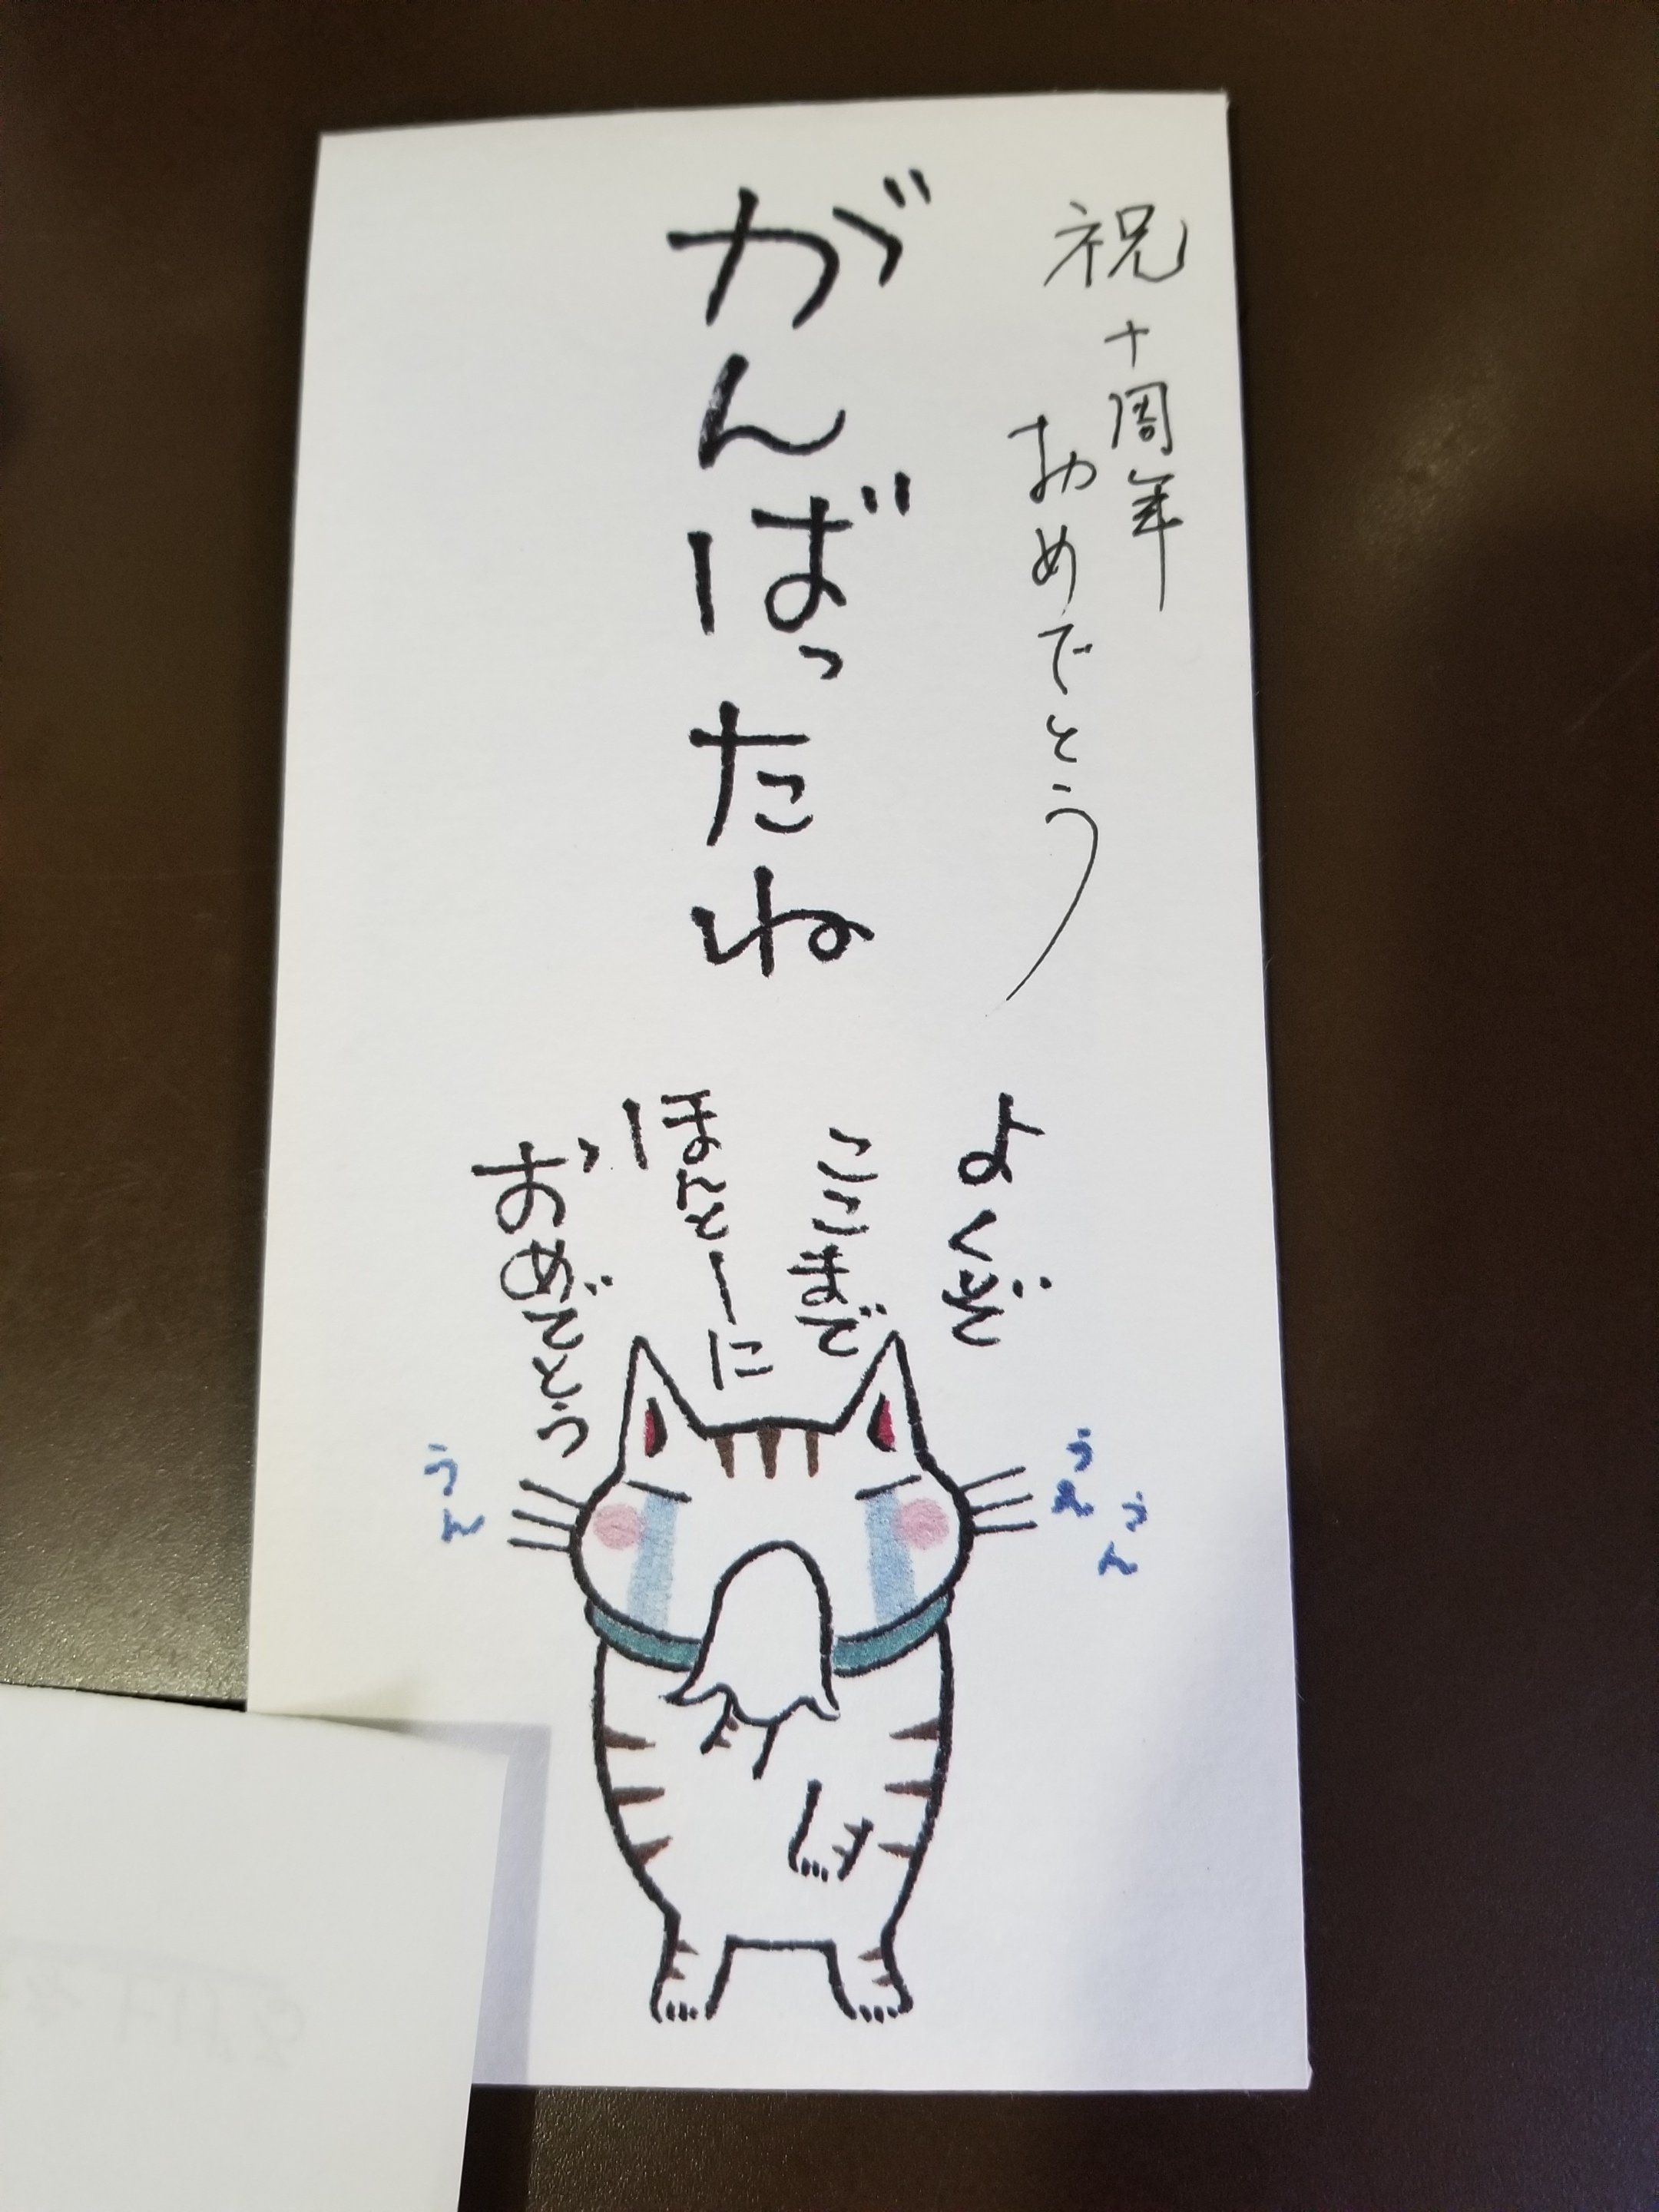 祝十周年
おめでとう
がんばったね
よくぞ
ここまで
ほんとーに
おめでとう
うん
うん
うん